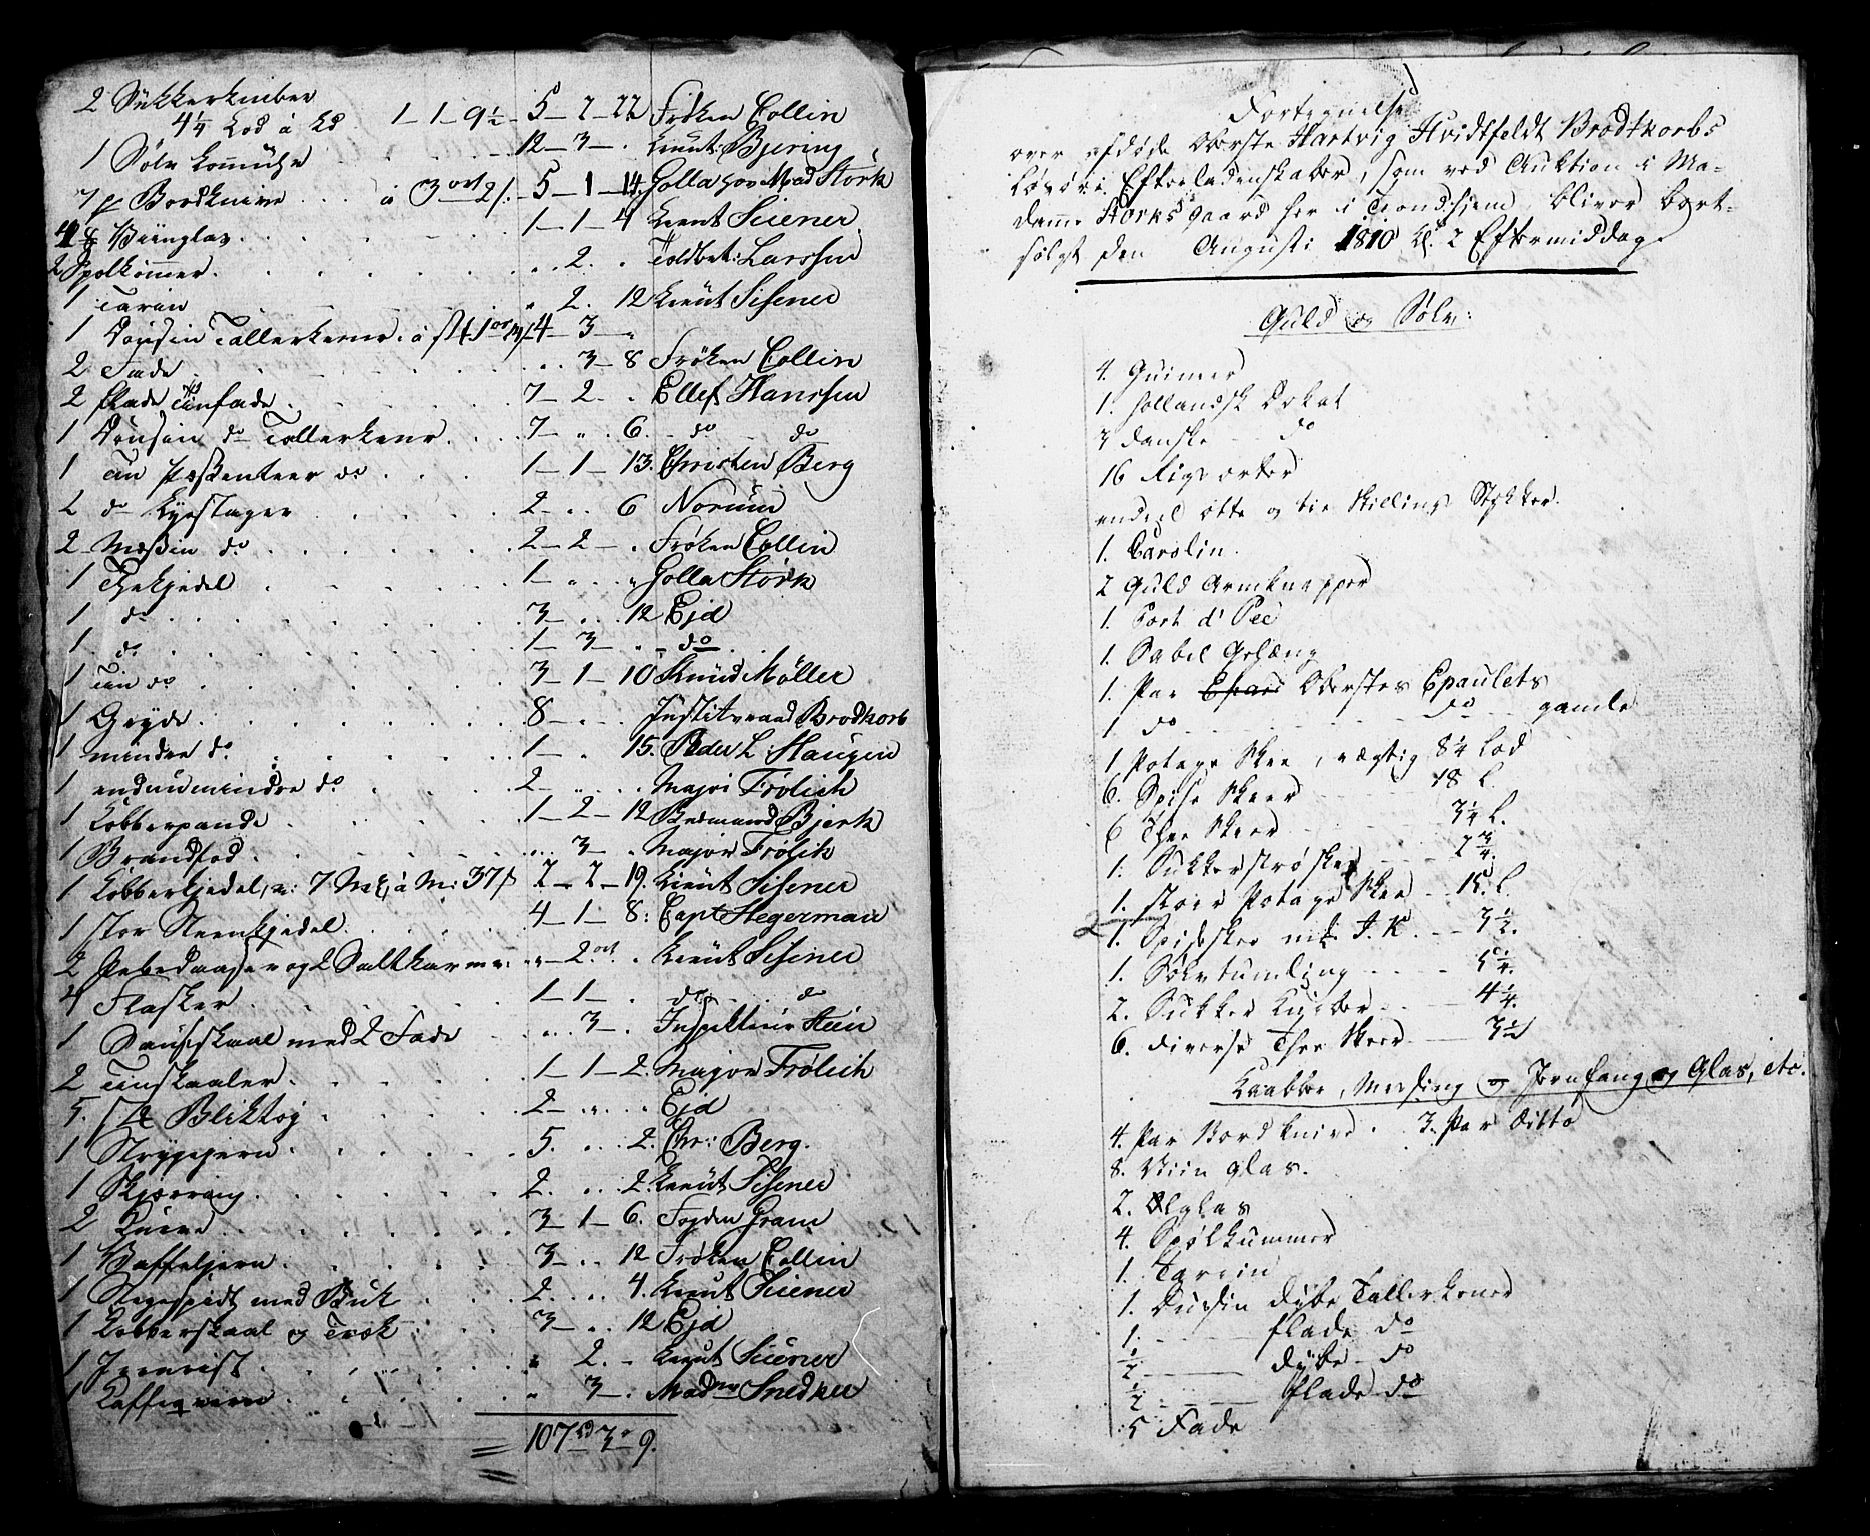 2 Sukkerkniber
4¼ Lod á Ld 1-1-9½ 5-2-22 Frøken Collin
1 Sølv 12-3- Lieut: Bjering
7 p Bordknive á 3 ort 2 5-1-14 Golla hos Mad Størk
Viinglas 1-1-4 Lieut
2 Spølkommer 2. Toldbet: Larssen
1 Tarin 2. 12 Lieut Sissener
1 Dousin Tallerkener 4-3-
2 Fade 3-8 Frøken Collin
2 flade Tinfade 7-2. Ellef Hanssen
1 Dousin do Tallerkener 7 - 6. do do
1 Tin do 1-1-13. Christen Berg
2 do Lysestager 2 - 6 Norum
2 Messin do 2-2- Frøken Collin
1 Thekjedel 1 Golla Størk
1 do 3 - 12 Ejd
1 do 1-3- do
1 Tin do 3-1-10 Knud Møller
1 Gryde 8 Institsraad Brodkorb
1 mindre do 1 - 15. Peder L: Haugen
1 endnu mindre do 2 Major Frølich
1 Kobberpande 1-2-12 Bjerk
1 Brandfod 3 Major Frølich
1 Kobberkjedel, 7 Mk á M: 37 2-2-19. Lieut Sissener
1 stor Steenkjedel 4-1-8: Capt Hegerman
2 Peberdaaser og 2 Saltkar 2 ort Lieut Sissener
4 Flasker 1-1- do do
1 Sauseskaal med 2 Fade 3 -
2 Tinskaaler 1-1-2. Major Frølich
5. St Bliktøj 2 Ejd
1 Strygejern 5. 2. Chr: Berg.
1 2. 2. Lieut Sissener
2 3-1-6. Fogden Gram
1 Vaffeljern 3 12 Frøken Collin
1 Stegespidt med Buk 2 4. Lieut
1 Kobberskaal og 3 12 Ejd
1 Jernrist 2. Lieut
1 Kaffeqvern 3 Madme
107 3 9.
Fortegnelse
over afdøde Oberste Hartvig Hvidtfeldt Brodtkorbs
Løsøre Efterladenskaber, som ved Auktion i Ma-
dame Størks gaard her i Trondhjem, bliver bort-
solgt den Augusti 1810 Kl. 2 Eftermiddag.
Guld og Sølv:
4. Guineer
1. hollandsk Dukat
3 danske do
16 Rigsorter
endeel otte og tie Skillings Stykker.
1. Carolin.
2 Guld Armknapper
1. Port d' Pee
1. Sabel Gehæng
1. Par Oberstes Epaulets
1 do do gamle
1 Potage Skee, vægtig 8¼ Lod
6. Spise Skeer 18 L.
6 Thee Skeer 3¼ L.
1. Sukkerstrøskee 2¾.
1. stoer Potage Skee 15. L
1. Spiseskee mk J. K. 3½.
1. Sølvtumling 5¼.
2. Sukker Kniber 4¼.
6. diverse Thee Skeer 3½
Kaabber, Messing og Jernfang og Glas, etc.
4. Par Bordknive. 3. Par Ditto
8. Viin glas.
2. Ølglas
4. Spølkummer
1. Tarrin
1. Dusin dybe Tallerkener
1. flade do
½ dybe do
½ flade do
5 Fade